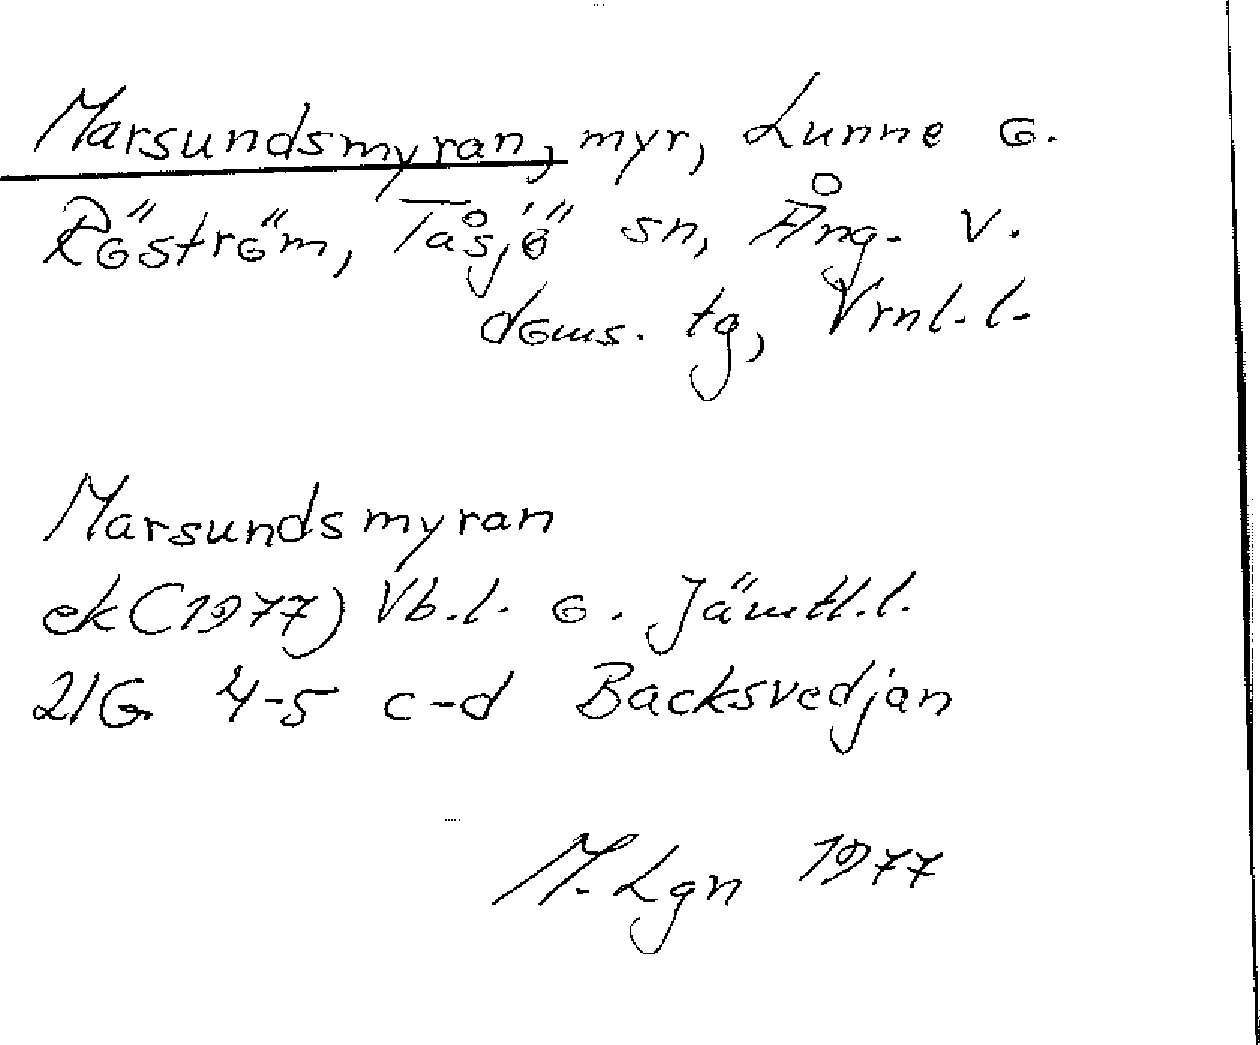 Marsundsmyran, myr, Lunne o.
Röström, Tåsjö sn, Ång. v.
doms. tg, Vrnl. l.
Marsundsmyran
ek (1977) Vb. l. o. Jämtl. l.
21G 4-5 c-d Backsvedjan
M. Lgn 1977